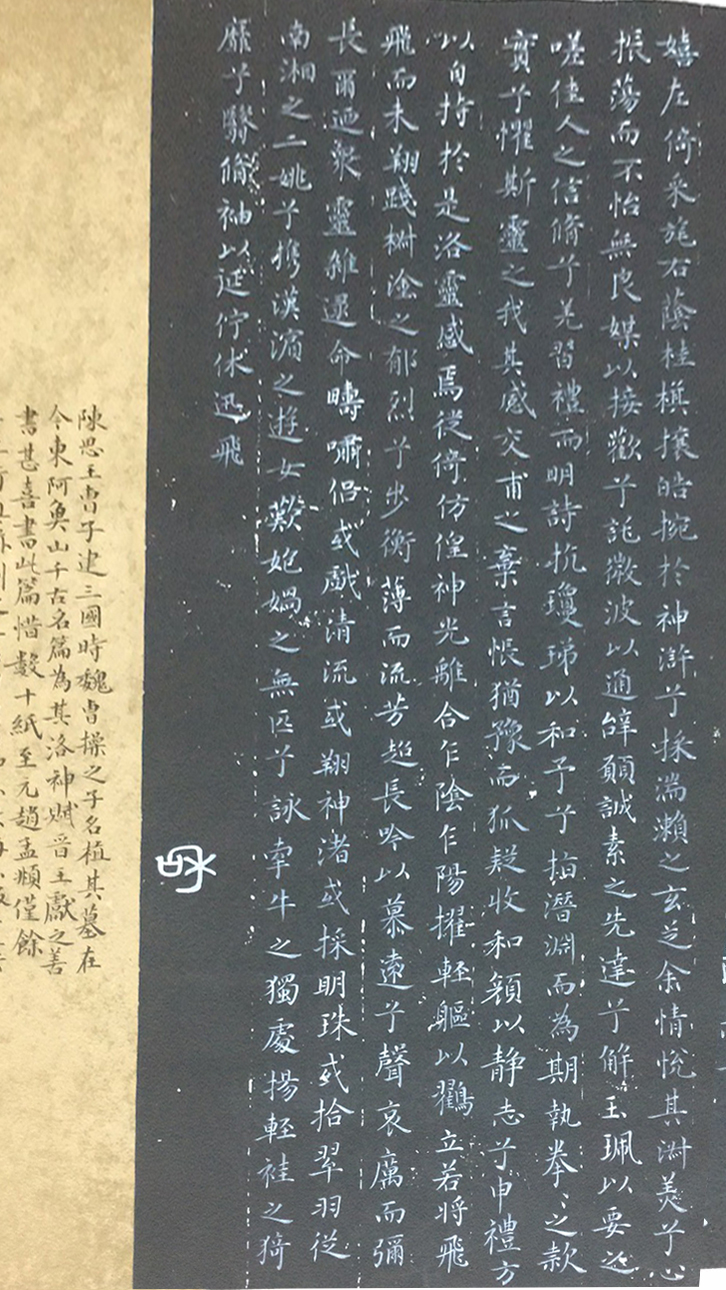 嬉左倚采旄右蔭桂旗攘皓捥於神滸兮採湍瀨之玄芝余情悅其淑美兮心
振蕩而不怡無良媒以接歡兮託微波以通辞願誠素之先達兮解玉珮以要之
嗟佳人之信脩兮羌習禮而明詩抗瓊珶以和予兮指潛淵而為期執拳〻之款
實兮懼斯靈之我其感交甫之棄言悵猶豫而狐疑收和顔以静志兮申禮方
以自持於是洛靈感焉徙倚仿偟神光離合乍陰乍陽擢軽軀以鶴立若將飛
飛而未翔踐椒塗之郁烈兮步衡薄而流芳超長吟以慕遠兮聲哀厲而彌
長爾迺衆靈雜遝命疇嘯侣或戲清流或翔神渚或採明珠或拾翠羽従
南湘之二姚兮携漢濱之遊女歎匏媧之無匹兮詠牽牛之獨處揚輕袿之猗
靡兮翳脩袖以延佇休迅飛
陳思王曹子建三國時魏曹操之子名植其墓在
今東阿魚山千古名篇為其洛神賦晋王獻之善
書甚喜書此篇惜數十紙至元趙孟頫僅餘